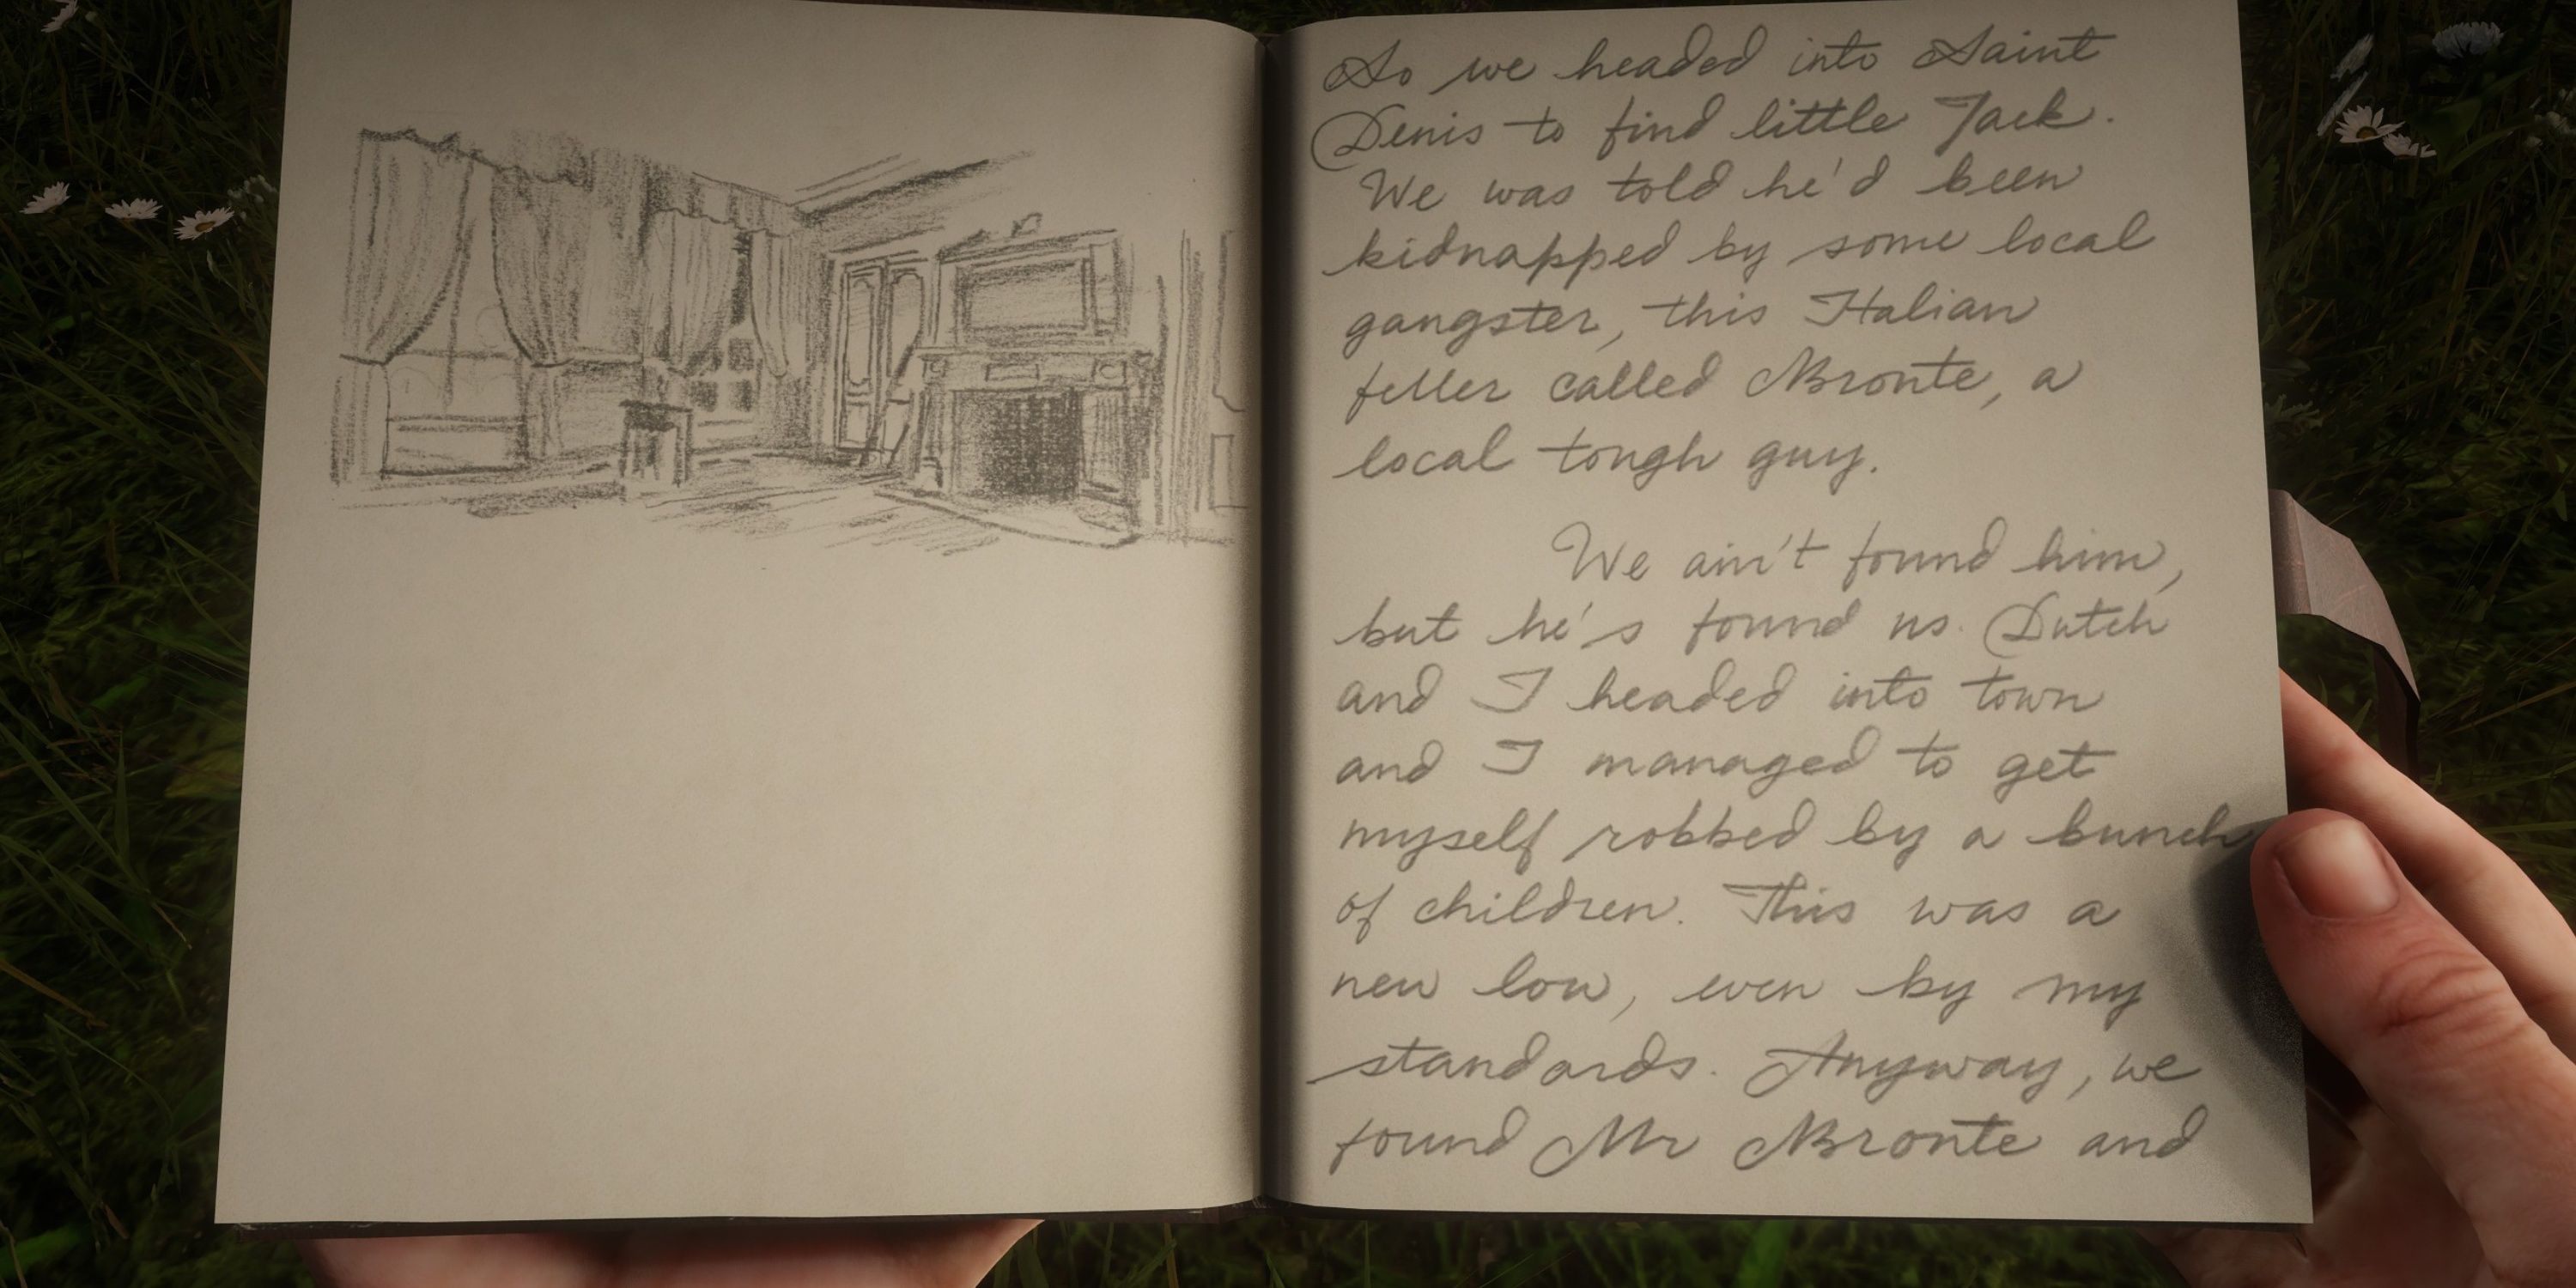 So we headed into Saint
Denis to find little Jack.
We was told he'd been
kidnapped by some local
gangster, this Italian
feller called Bronte, a
local tough guy.
We ain't found him,
but he's found us. Dutch
and I headed into town
and I managed to get
myself robbed by a bunch
of children. This was a
new low, even by my
standards. Anyway, we
found Mr Bronte and